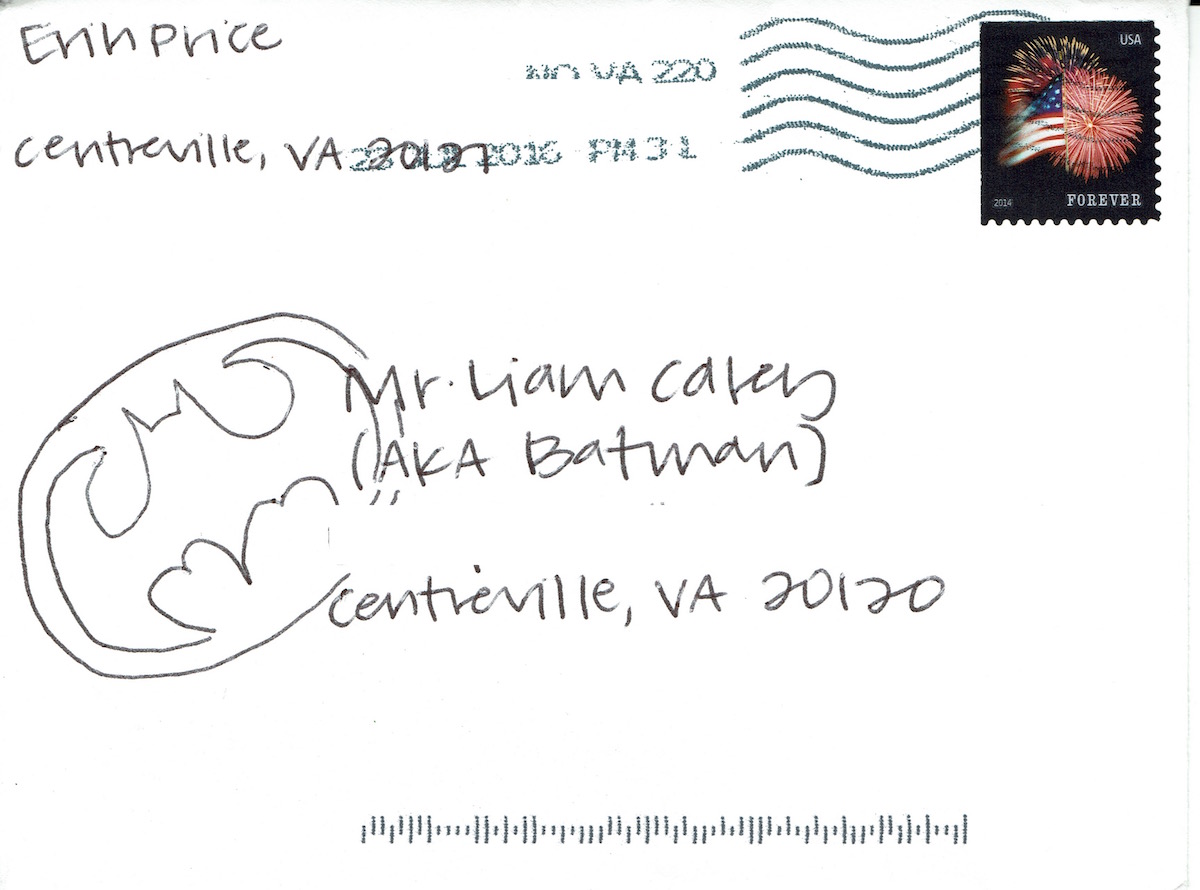 Erin Price
NO VA 220
Centreville, VA 20127
2016 PM 3 L
USA
2014 FOREVER
Mr. Liam Carey
(AKA Batman)
Centreville, VA 20120